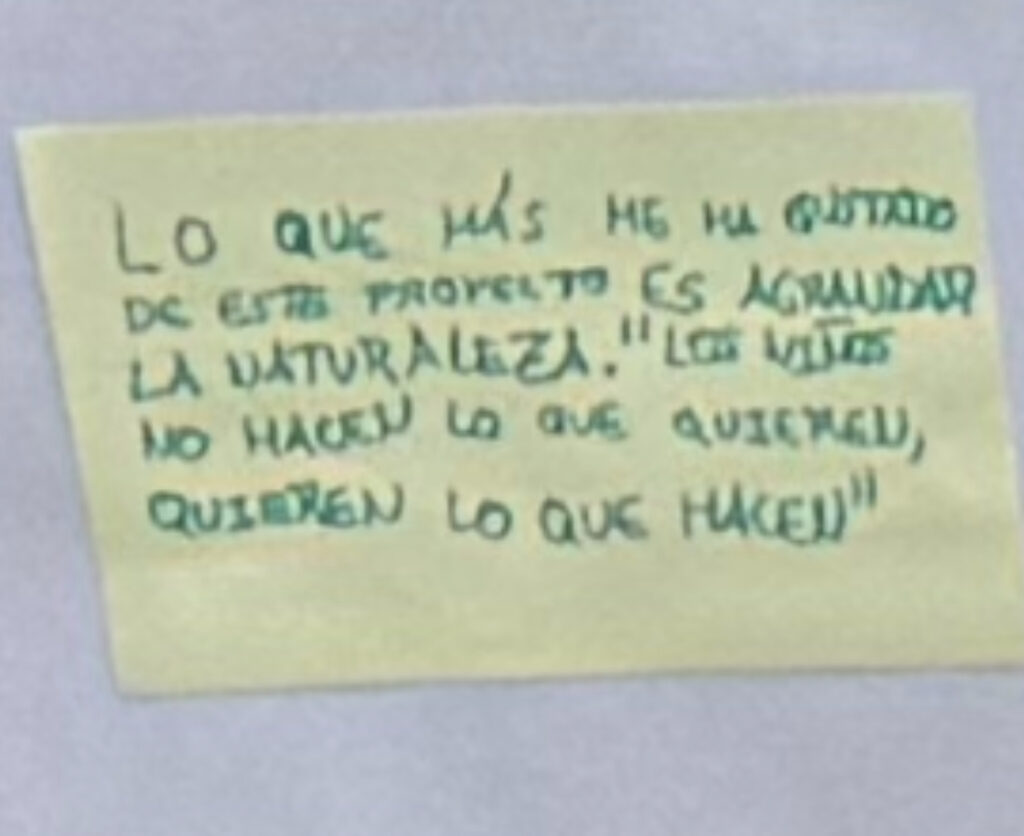 LO QUE MÁS ME HA GUSTADO
DE ESTE PROYECTO ES AGRANDAR
LA NATURALEZA. "LOS NIÑOS
NO HACEN LO QUE QUIEREN,
QUIEREN LO QUE HACEN"